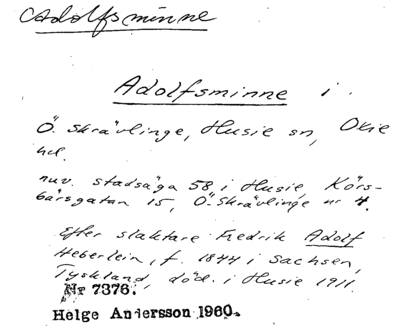 Adolfsminne
Adolfsminne i
Ö. Skrävlinge, Husie sn, Oxie
hd.
nuv. stadsäga 58 i Husie, Körs-
bärsgatan 15, Ö. Skrävlinge nr 4.
Efter slaktare Fredrik Adolf
Heberlein, f. 1844 i Sachsen,
Tyskland, död. i Husie 1911.
Nr 7376.
Helge Andersson 1960.